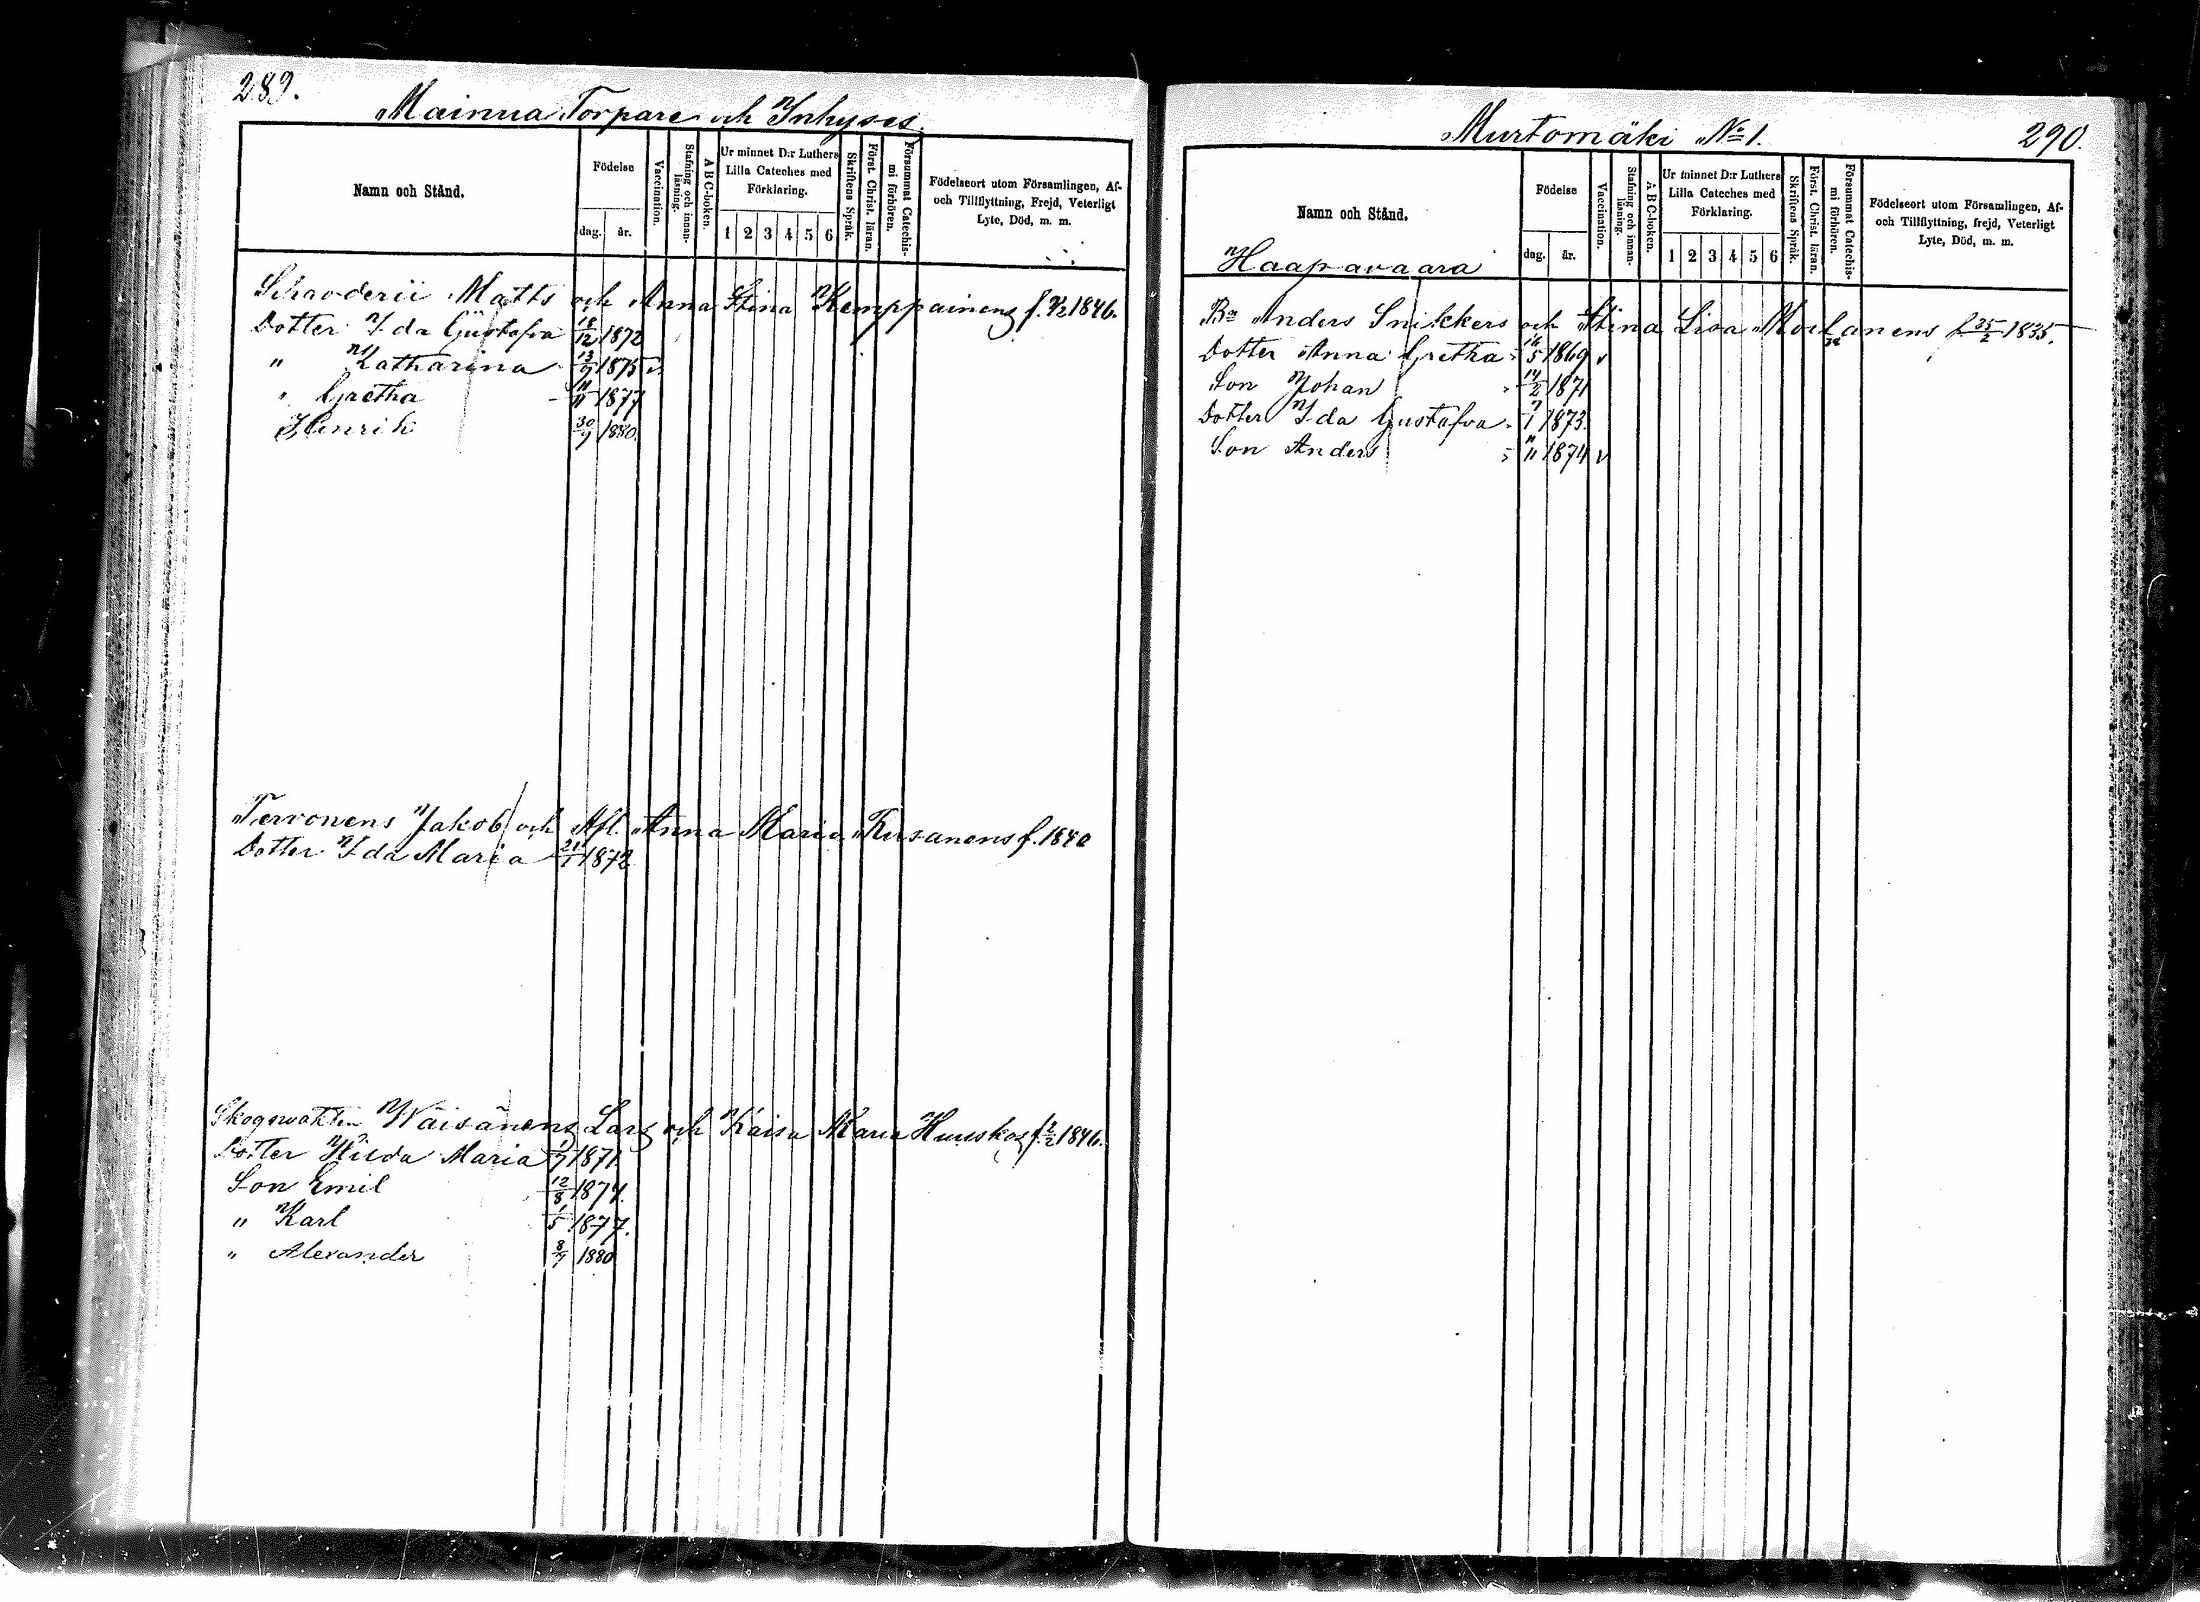 289.
Mainua Torpare och Inhyses
Namn och Stånd.
Födelse
dag.
år.
Vaccination.
Stafning och innan-
läsning.
ABC-boken.
Ur minnet D:r Luthers
Lilla Cateches med
Förklaring.
1 2 3 4 5 6
Skriftens Språk.
Först. Christ. läran.
Försummat Catechis-
mi förhören.
Födelseort utom Församlingen, Af-
och Tillflyttning, Frejd, Veterligt
Lyte, Död, m. m.
Schroderii Matts och Anna Stina Kemppainens f. 1846.
Dotter Ida Gustafva 18/12 1872
" Katharina 13/9 1875 v
" Gretha 11/11 1877
Henrik 30/9 1880.
Tervonens Jakob och Afl. Anna Maria Kusanens f. 1840
Dotter Ida Maria 21/1 1872
Skogsvakten Wäisänens Lars och Kaisa Maria Huuskos f. 2/2 1846.
Dotter Hilda Maria 1/9 1871.
Son Emil 12/8 1874.
" Karl 1/5 1877.
" Alexander 8/9 1880
Murtomäki No 1.
290.
Namn och Stånd.
Födelse
dag.
år.
Vaccination.
Stafning och innan-
läsning.
ABC-boken.
Ur minnet D:r Luthers
Lilla Cateches med
Förklaring.
1 2 3 4 5 6
Skriftens Språk.
Först. Christ. läran.
Försummat Catechis-
mi förhören.
Födelseort utom Församlingen, Af-
och Tillflyttning, frejd, Veterligt
Lyte, Död, m. m.
Haapavaara
Bn Anders Snikkers och Stina Lisa Moilanens f 25/2 1835.
Dotter Anna Gretha 16/5 1869 v
Son Johan 14/2 1871
Dotter Ida Gustafva 7/1 1873.
Son Anders 11/11 1874 v